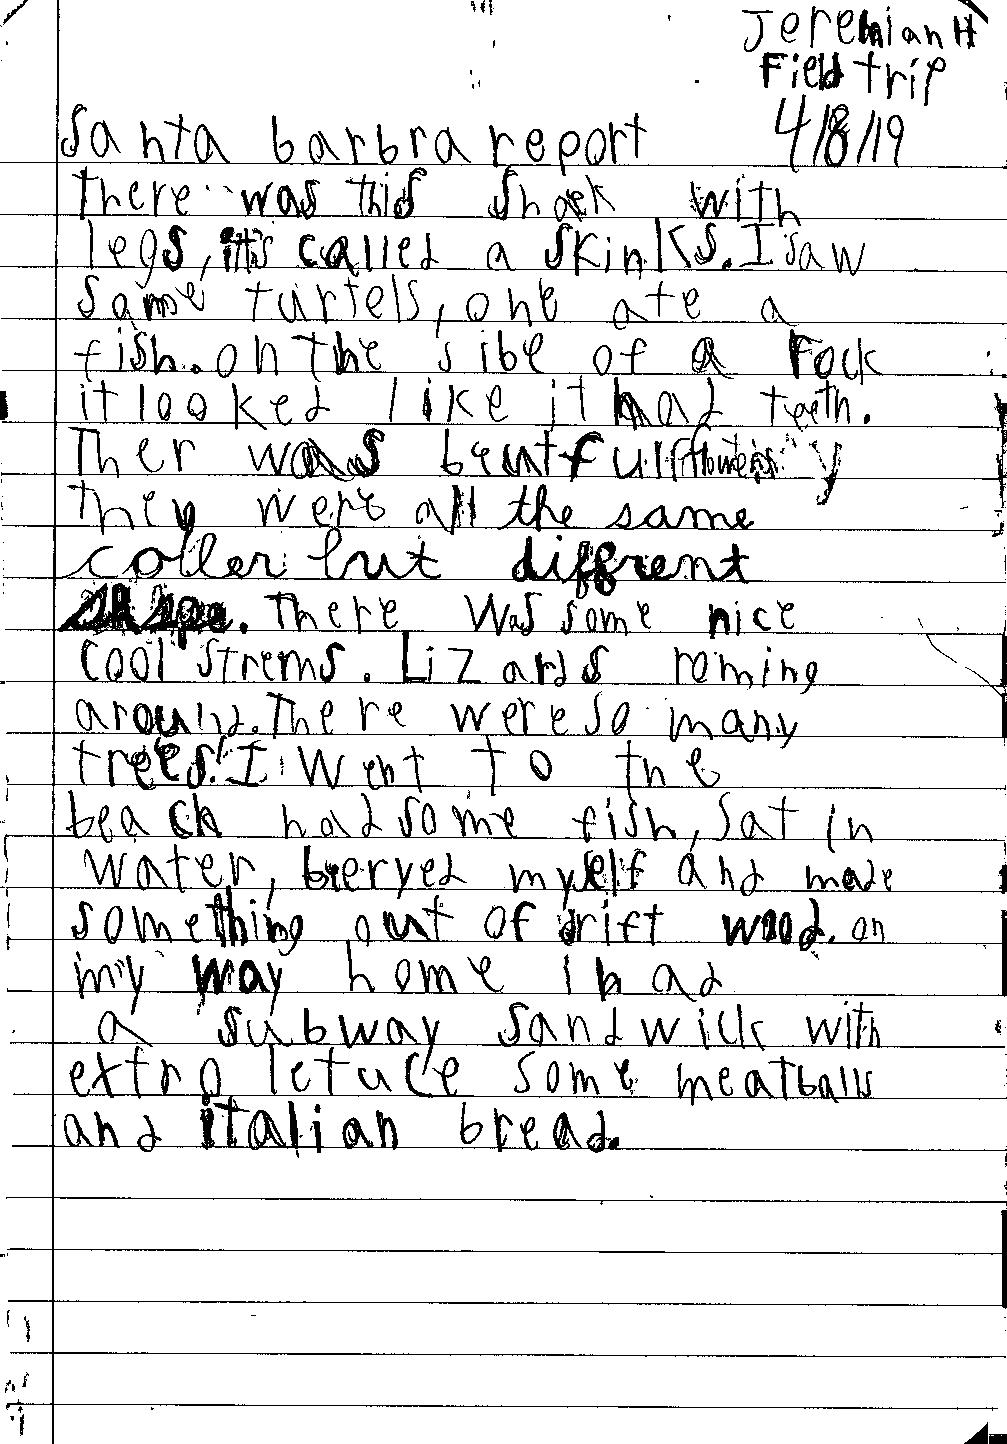 Jeremiah H
Field trip
4/8/19
Santa barbra report
There was this snaek with
legs, it's called a skinks. I saw
some turtels, one ate a
fish. on the sibe of a rock
it looked like it had teeth.
Ther was beutful flowers
They were all the same
coller but diffrent
shape. There was some nice
cool strems. Lizards roming
around. There were so many
trees! I went to the
beach had some fish, sat in
water, bieryed myself and made
something out of drift wood. on
my way home i had
a subway sandwick with
extra letuce some meatballs
and italian bread.